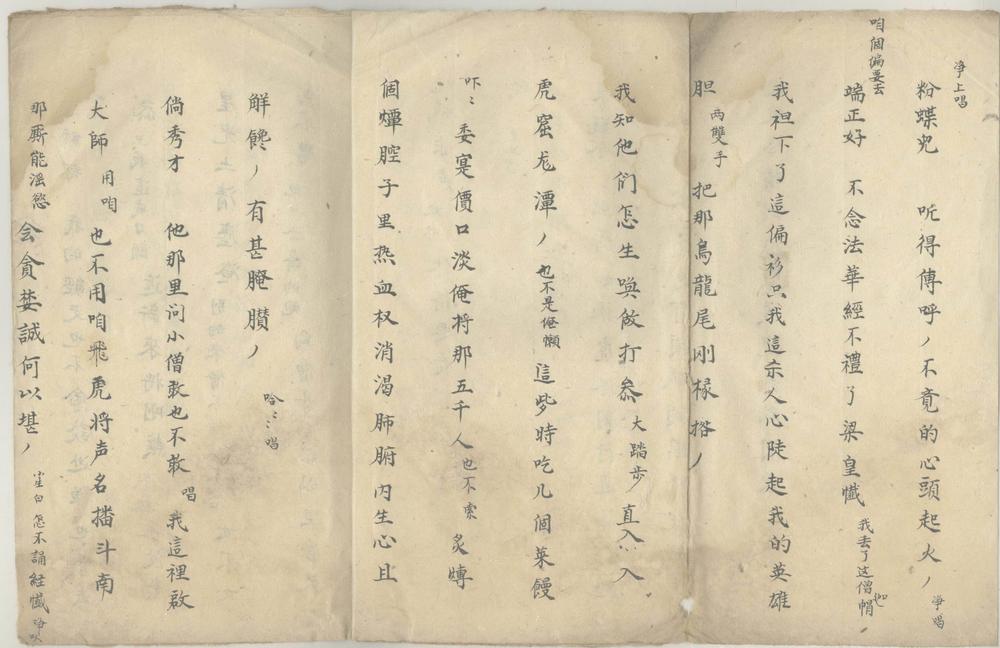 淨上唱
粉蝶児 听得傳呼丿不竟的心頭起火丿淨唱
咱個偏要去
端正好 不念法華經不禮了梁皇懺我去了这僧帽
我袒下了這偏衫只我這杀人心陡起我的英雄
胆两雙手把那烏龍尾刚椽撘丿
我知他们怎生唤做打叅大踏步直入入
虎窟龙潭丿也不是俺懒這些時吃几個菜饅
吓〻委寔價口淡俺将那五千人也不索炙
個燂腔子里热血权消渴肺腑内生心且
觧馋丿有甚腌臢丿哈〻唱
倘秀才 他那里问小僧敢也不敢唱我這裡啟
大師用咱也不用咱飛虎将声名播斗南
那厮能滛慾会貪婪誠何以堪丿白怎不誦経懺